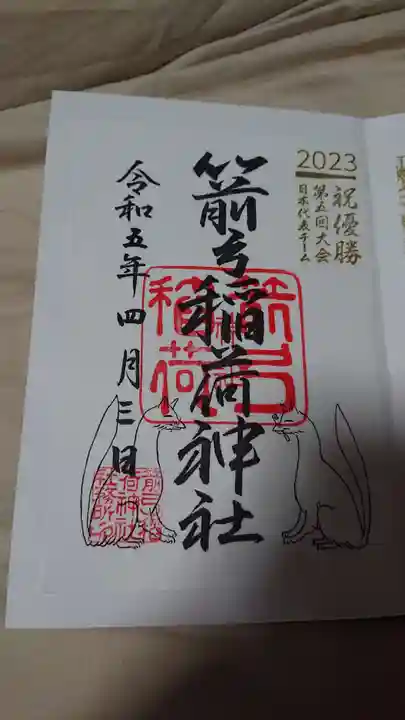 2023
祝優勝
第五回大会
日本代表チーム
箭弓稲荷神社
令和五年四月三日
箭弓稲荷